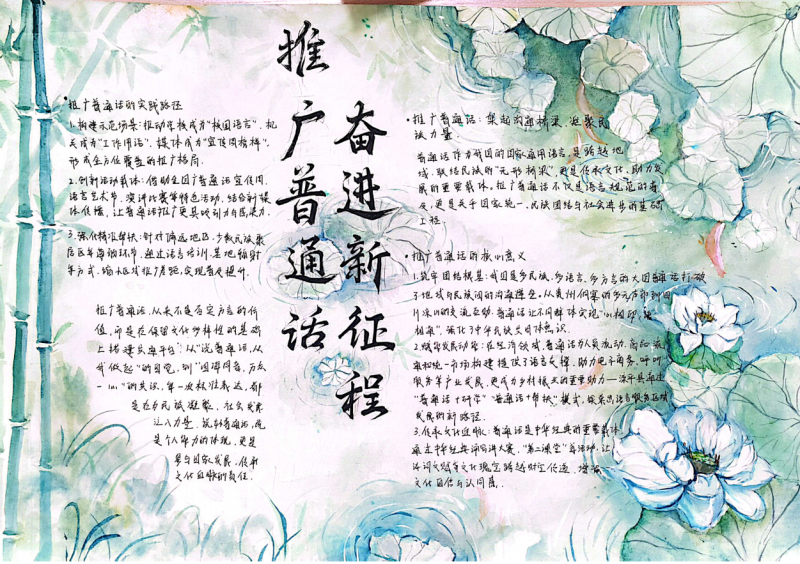 推广普通话
奋进新征程
推广普通话的实践路径
1.构建示范场景:推动学校成为“校园语言”、机
关成为“工作用语”、媒体成为“宣传用榜样”,
形成全方位覆盖的推广格局.
2.创新活动载体:借助全国推广普通话宣传周、
语言艺术节、演讲比赛等特色活动,结合新媒
体传播,让普通话推广更具吸引力与感染力.
3.强化精准帮扶:针对偏远地区、少数民族聚
居区等薄弱环节,通过语言培训、基地辐射
等方式,缩小区域推广差距,实现普及提升.
推广普通话,从来不是否定方言的价
值,而是在保留文化多样性的基础
上搭建共通平台.从“说普通话,从
我做起”的自觉,到“
”的共识,每一次标准表达,都
是在为民族凝聚、社会发展
注入力量.说好普通话,既
是个人能力的体现,更是
参与国家发展、传承
文化血脉的责任.
推广普通话:架起沟通桥梁,凝聚民
族力量
普通话作为我国的国家通用语言,是跨越地
域、联结民族的“无形桥梁”,更是传承文化、助力发
展的重要载体.推广普通话不仅是语言规范的普
及,更是关乎国家统一、民族团结与社会进步的基础
工程.
推广普通话的核心意义
1.筑牢团结根基:我国是多民族、多语言、多方言的大国,普通话打破
了地域与民族间的沟通壁垒.从贵州侗寨的多元声部到四
川凉山的交流互助,普通话让不同群体实现“心相印、
相亲”,强化了中华民族共同体意识.
2.赋能发展动能:在经济领域,普通话为人员流动、商品流
通和统一市场构建提供了语言支撑,助力电子商务、呼叫
服务等产业发展,更成为乡村振兴的重要助力——
“普通话+研学”“普通话+帮扶”模式,
发展的新路径.
3.传承文化血脉:普通话是中华经典的重要载体.
通过中华经典诵写讲大赛、“第二课堂”等活动,让
诗词文赋等文化瑰宝跨越时空传递,增强
文化自信与认同感.